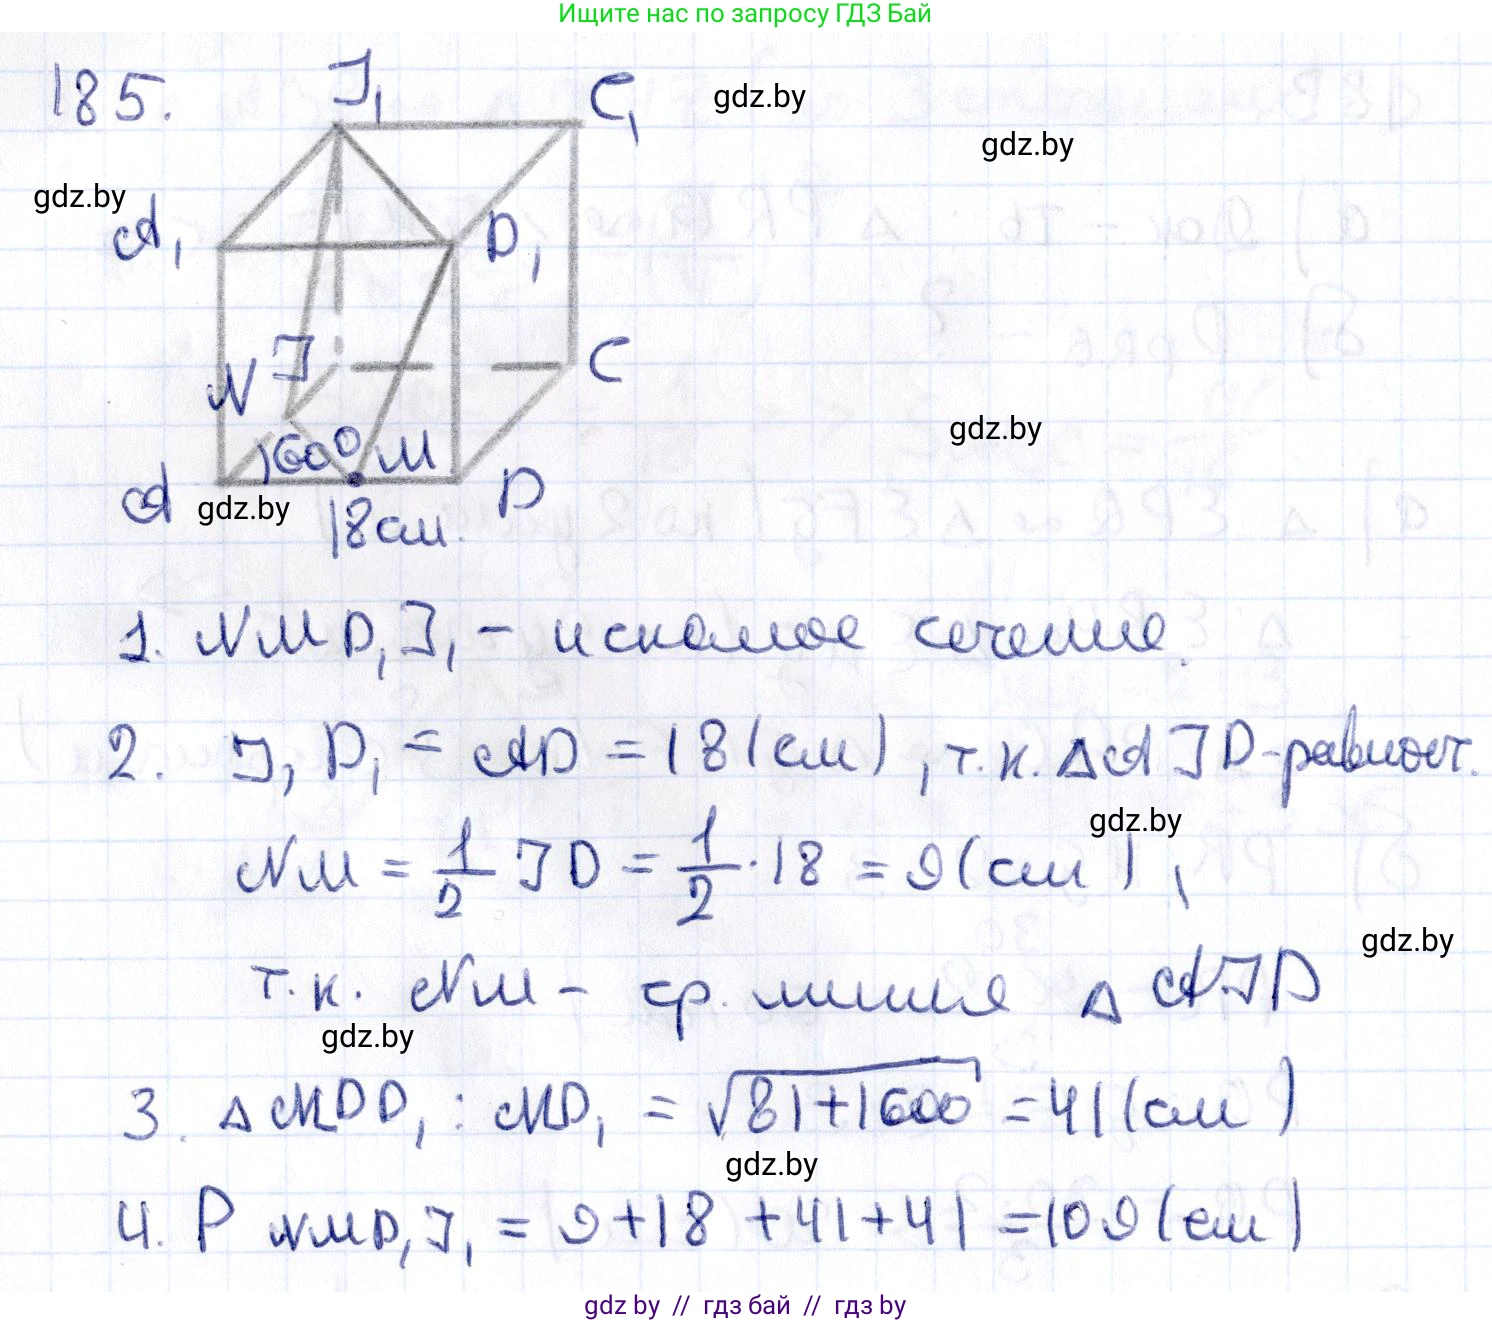 Ищите нас по запросу ГДЗ Бай
185.
J₁ C₁
gdz.by
gdz.by
gdz.by
A₁ D₁
N J C
gdz.by
60° M
A gdz.by D
18 см.
1. NMD₁J₁ - искомое сечение.
2. J₁D₁ = AD = 18 (см), т.к. △AJD - равност.
gdz.by
NM = 1/2 JD = 1/2 · 18 = 9 (см),
gdz.by
т.к. NM - ср. линия △ AJD
gdz.by
3. △MDD₁ : MD₁ = √81+1600 = 41 (см)
gdz.by
4. P NMD₁J₁ = 9+18+41+41 = 109 (см)
gdz by // гдз бай // гдз by